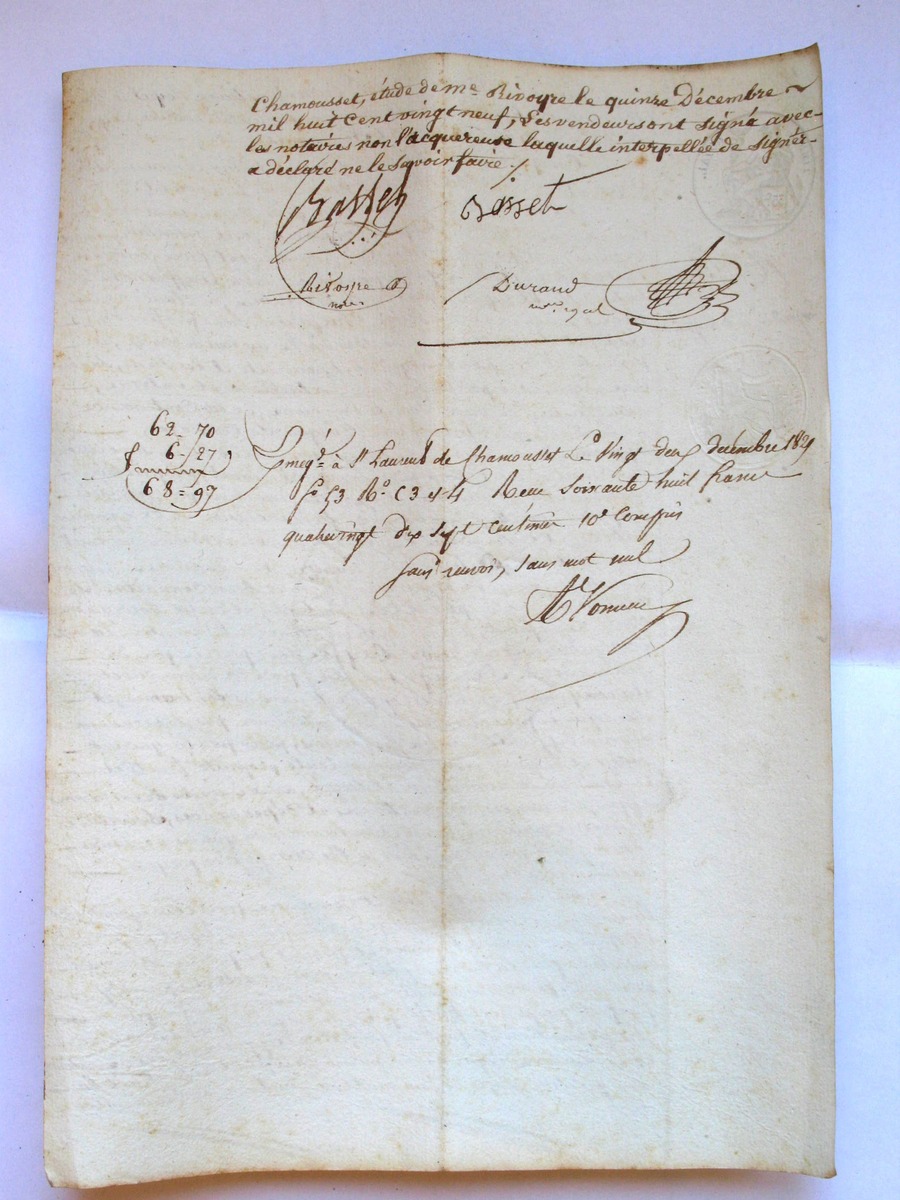 Chamousset, étude de me Rivoyre le quinze Décembre
mil huit cent vingt neuf, Les vendeurs ont signé avec
les notaires non l'acquereuse laquelle interpellée de signer
a déclaré ne le Savoir faire ./.
Basset Basset
Rivoyre Durand
nre
62 = 70
6 = 27
68 = 97
à St Laurent de Chamousset Le Vingt deux décembre 1829
fo 53 Ro C 3 et 4 Reçu soixante huit francs
quatrevingt dix sept centimes 10e Compris
sans renvoi, sans mot nul